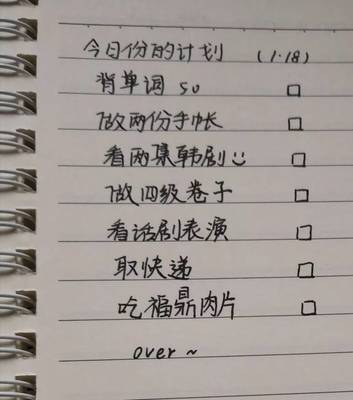 今日份的计划 (1.18)
背单词 50 □
做两份手帐 □
看两集韩剧 □
做四级卷子 □
看话剧表演 □
取快递 □
吃福鼎肉片 □
over ~